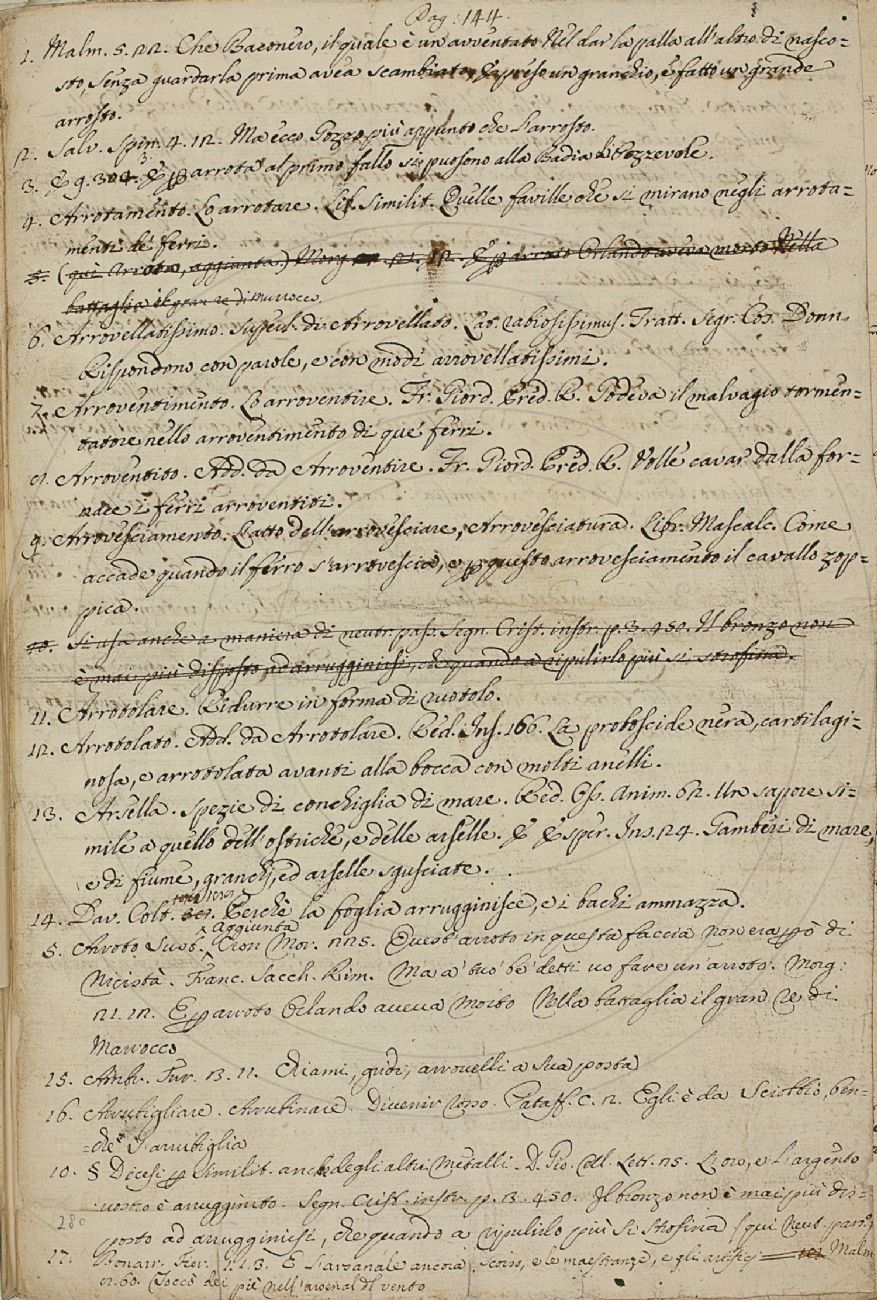 Pag: 144.
1. Malm. 5. 22. Che Baconero, il quale è un avventato Nel dar la palla all'altro di nasco=
sto, senza guardarla prima avea scambiato, e preso un granchio, e fatto un grande
arrosto.
2. Salv. Spin. 4. 12. Ma ecco Gozzo più appunto che l'arrosto.
3. E g. 304. 3. E p arrota al primo fallo si puosono alla Badia a Bozzevole.
4. Arrotamento. Lo arrotare. Lib. Similit. Quelle faville che si mirano negli arrota=
menti de' ferri.
5. (qui Arrota, aggiunta.) Morg. 21. 12. E p arroto Orlando aveva morto Nella
battaglia il gran re di Marrocco.
6. Arrovellatissimo. Superl. di Arrovellato. Lat. rabiosissimus. Tratt. Segr. Cos. Donn.
Rispondono con parole, e con modi arrovellatissimi.
7. Arroventimento. Lo arroventire. Fr. Giord. Pred. R. Godeva il malvagio tormen=
tatore nello arroventimento di que' ferri.
8. Arroventito. Add. da Arroventire. Fr. Giord. Pred. R. Volle cavar dalla for=
nace i ferri arroventiti.
9. Arrovesciamento. L'atto dell'arrovesciare, Arrovesciatura. Libr. Mascalc. Come
accade quando il ferro s'arrovescia, e p questo arrovesciamento il cavallo zop=
pica.
10. Si usa anche a maniera di neutr. pass. Segn. Crist. instr. p. 3. 450. Il bronzo non
è mai più disposto ad arrugginirsi, che quando a ripulirlo più si strofina.
11. Arrotolare. Ridurre in forma di ruotolo.
12. Arrotolato. Add. da Arrotolare. Red. Ins. 166. La proboscide nera, cartilagi=
nosa, e arrotolata avanti alla bocca con molti anelli.
13. Arsella. Spezie di conchiglia di mare. Red. Oss. Anim. 62. Un sapore si=
mile a quello dell'ostriche, e delle arselle. E Esper. Ins. 124. Gamberi di mare,
e di fiume, granchj, ed arselle sgusciate.
14. Dav. Colt. Perchè la foglia arrugginisce, e i bachi ammazza.
Aggiunta
5. Arroto Sust. Cron. Mor. 225. Quest'arroto in questa faccia non era p ò di
Nicistà. Franc. Sacch. Rim. Ma a' tuo' be' detti vo fare un'arroto. Morg:
21. 12. E p arroto Orlando aveva Morto Nella battaglia il gran re di
Marrocco
15. Ambr. Fur. 13. 11. Chiami, gridi, arrovelli a sua posta
16. Arrubigliare. Arrubinare. Divenir rosso. Pataff. C. 2. Egli è da Sciobbio, ben=
=chè s'arrubiglia
10. § Dicesi p similit. anche degli altri Metalli. D. Gio. Cell. Lett. 25. L'oro, e l'argento
vostro è arrugginito. Segn. Crist. instr. p. 13. 450. Il bronzo non è mai più dis=
posto ad arrugginirsi, che quando a ripulirlo più si strofina (qui Neut. pass.)
17. Bonarr. Fier. 1. 1. 3. E l'arzanale ancora Scorso, e le maestranze, e gli artefici Malm.
Toccò dei piè nell'arsenal del vento